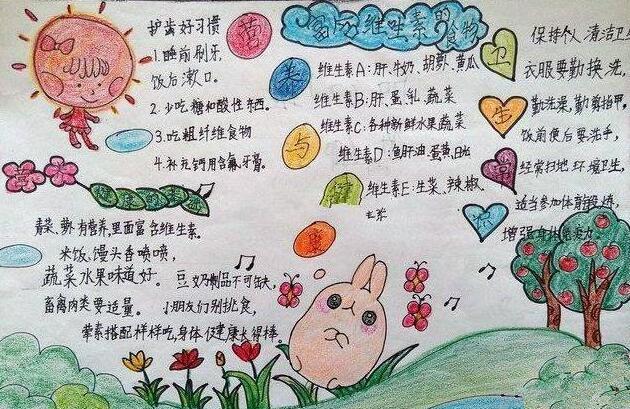 护齿好习惯
1.睡前刷牙,
饭后漱口。
2.少吃糖和酸性东西。
3.吃粗纤维食物
4.补充钙用含氟牙膏。
营
养
与
健
康
富含维生素的食物
维生素A:肝、牛奶、胡萝、黄瓜
维生素B:肝、蛋、乳、蔬菜
维生素C:各种新鲜水果蔬菜
维生素D:鱼肝油、蛋黄、日光
维生素E:生菜、辣椒、
卫
生
保持个人清洁卫生
衣服要勤换洗,
勤洗澡,勤剪指甲。
饭前便后要洗手,
经常扫地环境卫生,
适当参加体育锻炼,
增强身体免疫力
营
健康
青菜、萝卜有营养,里面富含维生素。
米饭、馒头香喷喷,
蔬菜水果味道好。豆奶制品不可缺,
畜禽肉类要适量。小朋友们别挑食,
荤素搭配样样吃,身体健康长得棒。